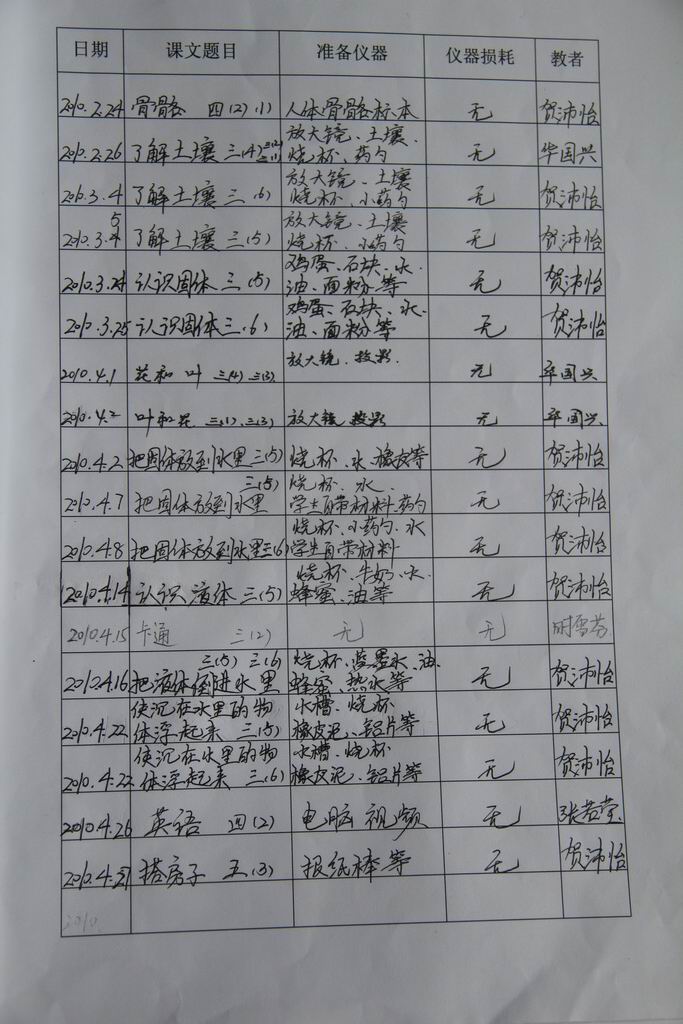 日期 课文题目 准备仪器 仪器损耗 教者
2010.2.24 骨骼 四(2)(1) 人体骨骼标本 无 贺沛怡
放大镜、土壤、
2010.2.26 了解土壤 三(4) 三(2) 三(1) 烧杯、药勺 无 华国兴
放大镜、土壤
2010.3.4 了解土壤 三(6) 烧杯、小药勺 无 贺沛怡
5 放大镜、土壤
2010.3.4 了解土壤 三(5) 烧杯、小药勺 无 贺沛怡
鸡蛋、石块、水、
2010.3.24 认识固体 三(5) 油、面粉等 无 贺沛怡
鸡蛋、石块、水、
2010.3.25 认识固体 三(6) 油、面粉等 无 贺沛怡
2010.4.1 花和叶 三(4) 三(3) 放大镜、投影 无 华国兴
2010.4.2 叶和花 三(1)、三(3) 放大镜 投影 无 华国兴
2010.4.2 把固体放到水里 三(5) 烧杯、水、橡皮等 无 贺沛怡
三(5) 烧杯、水、
2010.4.7 把固体放到水里 学生自带材料、药勺 无 贺沛怡
烧杯、小药勺、水
2010.4.8 把固体放到水里 三(6) 学生自带材料 无 贺沛怡
烧杯、牛奶、水、
2010.4.14 认识液体 三(5) 蜂蜜、油等 无 贺沛怡
2010.4.15 卡通 三(2) 无 无
三(5) 三(6) 烧杯、蓝墨水、油、
2010.4.16 把液体倒进水里 蜂蜜、热水等 无 贺沛怡
使沉在水里的物 水槽、烧杯
2010.4.22 体浮起来 三(5) 橡皮泥、铝片等 无 贺沛怡
使沉在水里的物 水槽、烧杯
2010.4.22 体浮起来 三(6) 橡皮泥、铝片等 无 贺沛怡
2010.4.26 英语 四(2) 电脑 视频 无 张若莹
2010.4.27 搭房子 五(3) 报纸棒等 无 贺沛怡
2010.